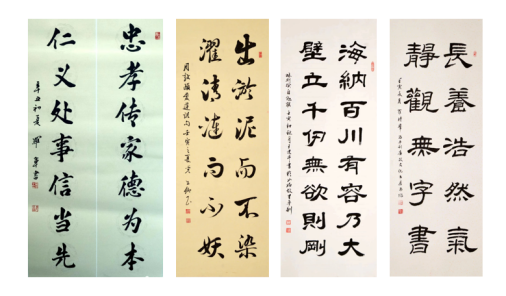 忠孝传家德为本
仁义处事信当先
辛丑初夏
出淤泥而不染
濯清涟而不妖
海納百川有容乃大
壁立千仞無欲則剛
長養浩然氣
靜觀無字書